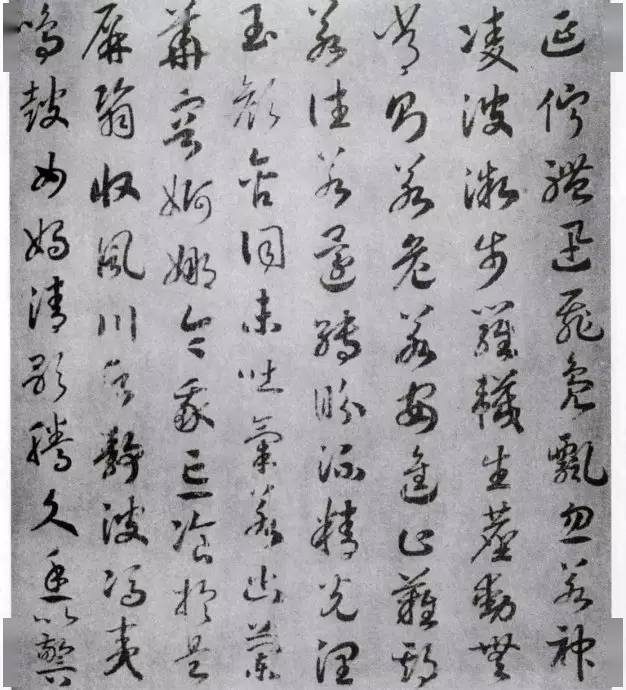 延佇體迅飛鳧飄忽若神
凌波微步羅襪生塵動無
常則若危若安進止難期
若往若還轉眄流精光潤
玉顏含詞未吐氣若幽蘭
華容婀娜令我忘飡於是
屏翳收風川后靜波馮夷
鳴鼓女媧清歌騰文魚以警